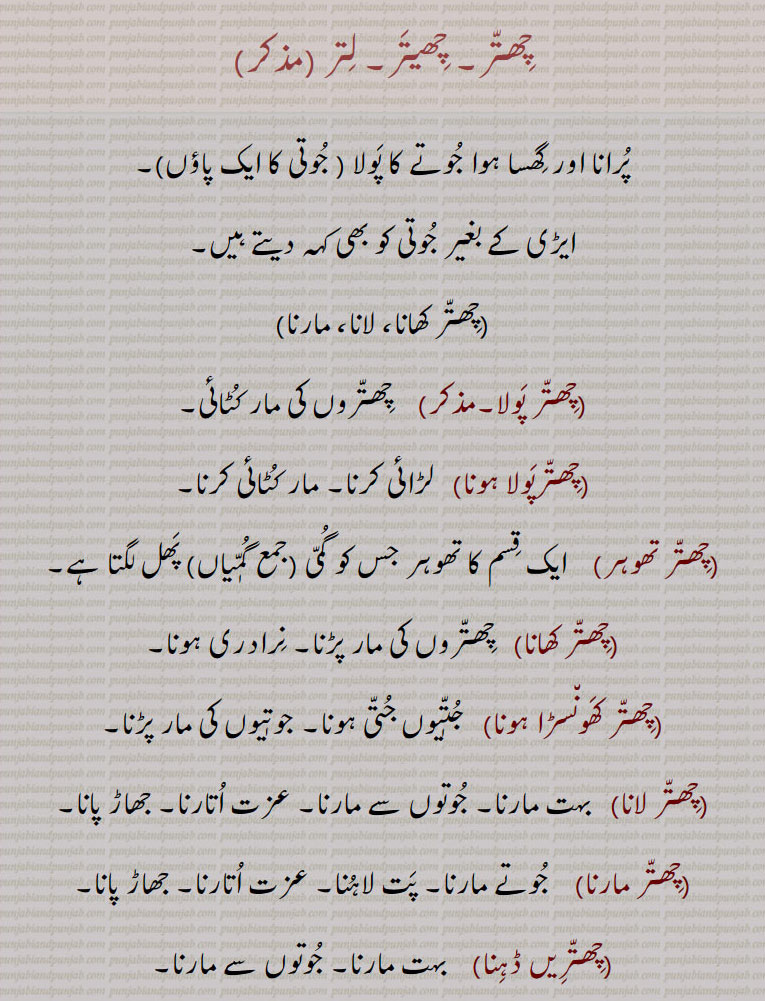 چِھتّر ۔ چِھیتَر ۔ لِتر (مذکر)
پُرانا اور گِھسا ہوا جُوتے کا پَولا ( جُوتی کا ایک پاؤں)۔
ایڑی کے بغیر جُوتی کو بھی کہہ دیتے ہیں۔
(چِھتّر کھانا، لانا، مارنا)
(چِھتّر پَولا۔مذکر) چِھتّروں کی مار کُٹائی۔
(چِھتّرپَولا ہونا) لڑائی کرنا۔ مار کُٹائی کرنا۔
(چِھتّر تھوہر) ایک قِسم کا تھوہر جس کو گُمّی (جمع گُمّیاں) پَھل لگتا ہے۔
(چِھتّر کھانا) چِھتّروں کی مار پڑنا۔ نِرادری ہونا۔
(چِھتّر کَھونّسڑا ہونا) جُتّیوں جُتّی ہونا۔ جوتیوں کی مار پڑنا۔
(چِھتّر لانا) بہت مارنا۔ جُوتوں سے مارنا۔ عزت اُتارنا۔ جھاڑ پانا۔
(چِھتّر مارنا) جُوتے مارنا۔ پَت لاہُنا۔ عزت اُتارنا۔ جھاڑ پانا۔
(چِھتّرِیں ڈہِنا) بہت مارنا۔ جُوتوں سے مارنا۔